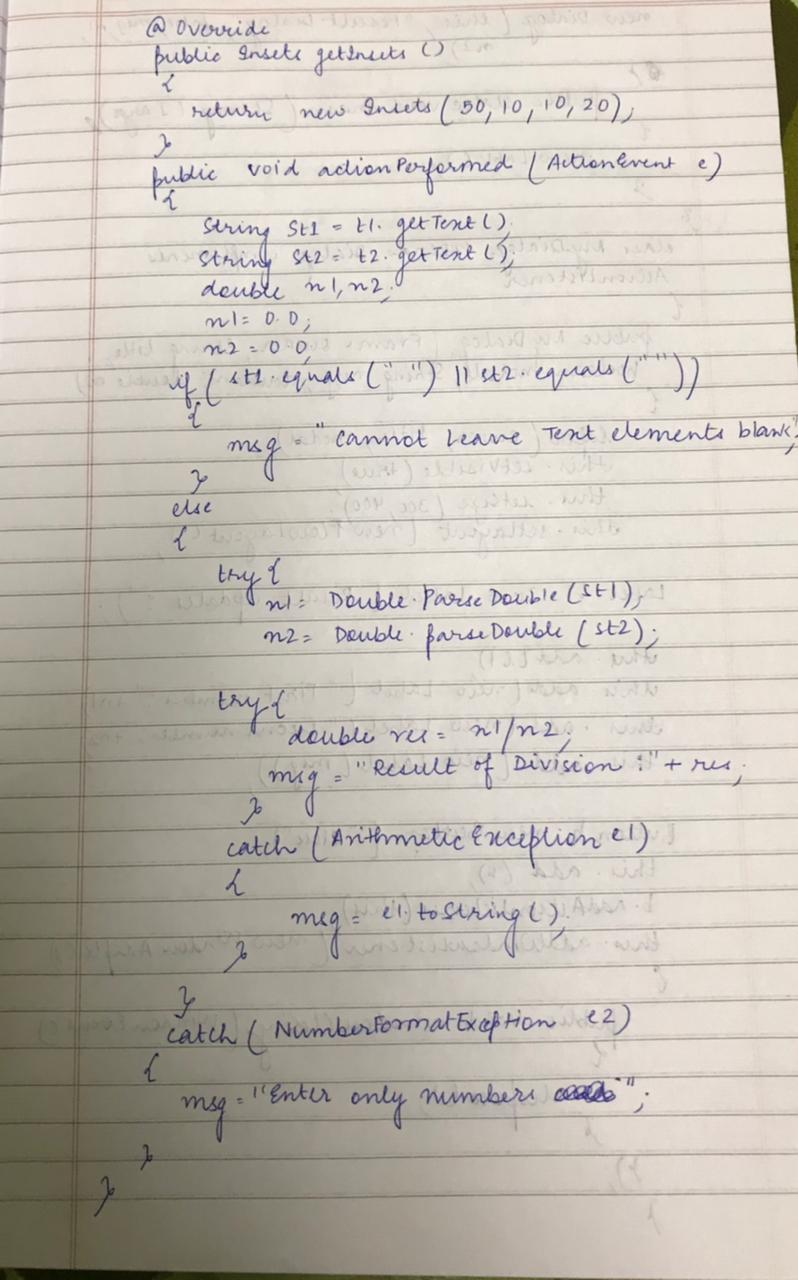 @Override
public Insets getInsets ()
{
return new Insets (50, 10, 10, 20);
}
public void actionPerformed (ActionEvent e)
{
String St1 = t1. getText ();
String St2 = t2. getText ();
double n1, n2;
n1 = 0.0;
n2 = 0.0;
if ( st1. equals (" ") || st2. equals (" "))
{
msg = "Cannot Leave Text elements blank";
}
else
{
try {
n1 = Double. ParseDouble (st1);
n2 = Double. parseDouble (st2);
try {
double res = n1/n2;
msg = "Result of Division :" + res;
}
catch ( Arithmetic Exception e1)
{
msg = e1. toString ();
}
}
catch ( NumberFormatException e2)
{
msg = "Enter only numbers ";
}
}